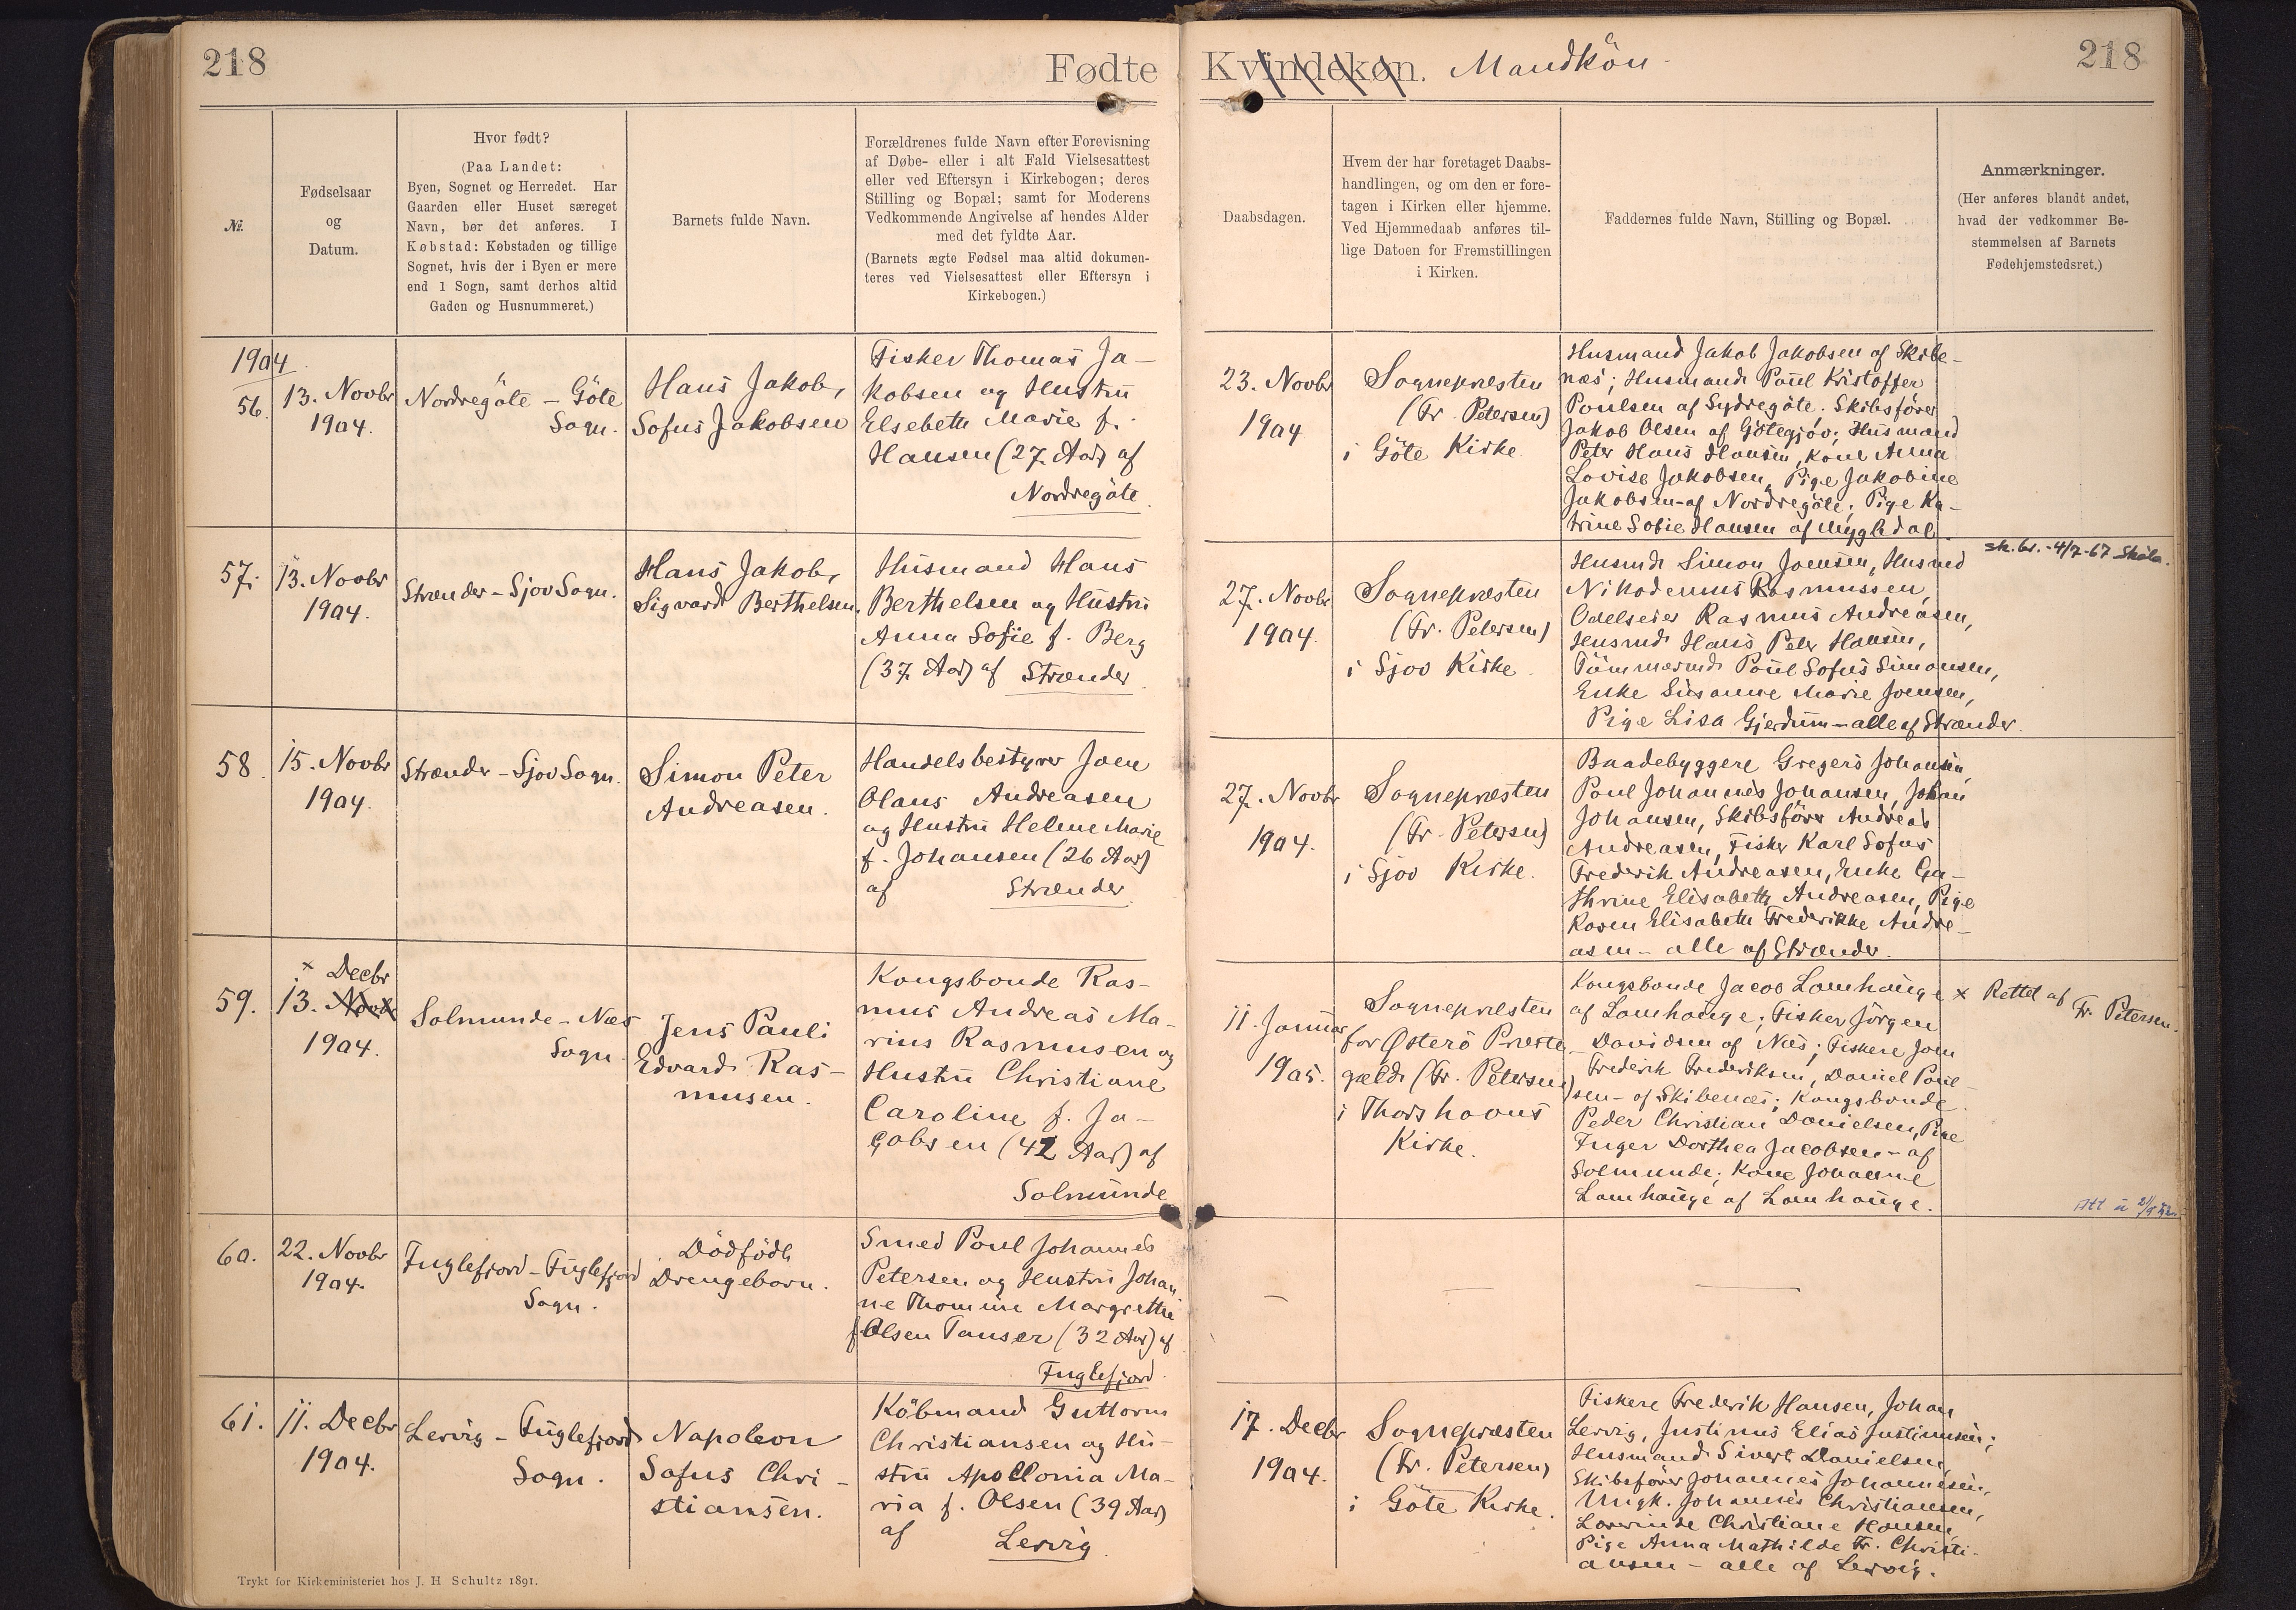 218
Fødte
Kvindekøn. Mandkön
218
No.
Fødselsaar
og
Datum.
Hvor født?
(Paa Landet:
Byen, Sognet og Herredet. Har
Gaarden eller Huset særeget
Navn, bør det anføres. I
Købstad: Købstaden og tillige
Sognet, hvis der i Byen er mere
end 1 Sogn, samt derhos altid
Gaden og Husnummeret.)
Barnets fulde Navn.
Forældrenes fulde Navn efter Forevisning
af Døbe- eller i alt Fald Vielsesattest
eller ved Eftersyn i Kirkebogen; deres
Stilling og Bopæl; samt for Moderens
Vedkommende Angivelse af hendes Alder
med det fyldte Aar.
(Barnets ægte Fødsel maa altid dokumen-
teres ved Vielsesattest eller Eftersyn i
Kirkebogen.)
Daabsdagen.
Hvem der har foretaget Daabs-
handlingen, og om den er fore-
tagen i Kirken eller hjemme.
Ved Hjemmedaab anføres til-
lige Datoen for Fremstillingen
i Kirken.
Faddernes fulde Navn, Stilling og Bopæl.
Anmærkninger.
(Her anføres blandt andet,
hvad der vedkommer Be-
stemmelsen af Barnets
Fødehjemstedsret.)
1904
56.
13. Novbr
1904.
Nordregöte - Göte
Sogn.
Hans Jakob,
Sofus Jakobsen
Fisker Thomas Ja-
kobsen og Hustru
Elsebeth Marie f.
Hansen (27 Aar) af
Nordregöte.
23. Novbr
1904
Sognepræsten
(Fr. Petersen)
i Göte Kirke
Husmand Jakob Jakobsen af Skibe-
næs; Husmand Poul Kristoffer
Poulsen af Sydregöte; Skibsförer
Jakob Olsen af Götegjov; Husmand
Peter Hans Hansen, Kone Anna
Lovise Jakobsen, Pige Jakobine
Jakobsen - af Nordregöte; Pige Ka-
trine Sofie Hansen af Mygledal.
57.
13. Novbr
1904.
Strænder - Sjov Sogn.
Hans Jakob,
Sigvard Berthelsen.
Husmand Hans
Berthelsen og Hustru
Anna Sofie f. Berg
(37 Aar) af Strænder.
27. Novbr
1904.
Sognepræsten
(Fr. Petersen)
i Sjov Kirke.
Husmd Simon Joensen, Husmd
Nikodemus Rasmussen,
Odelseier Rasmus Andreasen,
Husmd Hans Peter Hansen,
Tömmermd Poul Sofus Simonsen,
Enke Susanne Marie Joensen,
Pige Lisa Gjerdum - alle af Strænder.
sk.br. - 4/7-67 Skála.
58.
15. Novbr
1904.
Strænder - Sjov Sogn.
Simon Peter
Andreasen.
Handelsbestyrer Joen
Olaus Andreasen
og Hustru Helene Marie
f. Johansen (26 Aar)
af Strænder.
27. Novbr
1904.
Sognepræsten
(Fr. Petersen)
i Sjov Kirke.
Baadebyggere Gregers Johansen,
Poul Johannes Johansen, Johan
Johansen, Skibsförer Andreas
Andreasen, Fisker Karl Sofus
Frederik Andreasen, Enke Ca-
thrine Elisabeth Andreasen, Pige
Karen Elisabeth Frederikke Andre-
asen - alle af Strænder.
59.
x Decbr
13. Novbr
1904.
Solmunde - Næs
Sogn.
Jens Pauli
Edvard Ras-
musen.
Kongsbonde Ras-
mus Andreas Ma-
rius Rasmusen og
Hustru Christiane
Caroline f. Ja-
cobsen (42 Aar) af
Solmunde
11. Januar
1905.
Sognepræsten
for Østerö Præste-
gæld (Fr. Petersen)
i Thorshavns
Kirke.
Kongsbonde Jacob Lamhauge
af Lamhauge; Fisker Jörgen
Davidsen af Næs; Fiskere Joen
Frederik Frederiksen, Daniel Poul-
sen - af Skibenæs; Kongsbonde
Peder Christian Danielsen, Pige
Inger Dorthea Jacobsen - af
Solmunde; Kone Johanne
Lamhauge af Lamhauge.
x Rettet af
Fr. Petersen.
60.
22. Novbr
1904.
Fuglefjord - Fuglefjord
Sogn.
Dödfödt
Drengebarn.
Smed Poul Johannes
Petersen og Hustru Johan
ne Thomine Margrethe
f. Olsen Tauser (32 Aar) af
Fuglefjord.
61.
11. Decbr
1904.
Lervig - Fuglefjord
Sogn.
Napoleon
Sofus Chri-
stiansen.
Köbmand Guttorm
Christiansen og Hu-
stru Apollonia Ma-
ria f. Olsen (39 Aar)
af Lervig.
17. Decbr
1904.
Sognepræsten
(Fr. Petersen)
i Göte Kirke.
Fiskere Frederik Hansen, Johan
Lervig, Justinus Elias Justinusen;
Husmand Sivert Danielsen,
Skibsförer Johannes Johannesen,
Ungk. Johannes Christiansen,
Christiane Hansen,
Pige Anna Mathilde Fr. Christi-
ansen - alle af Lervig.
Trykt for Kirkeministeriet hos J. H Schultz 1891.